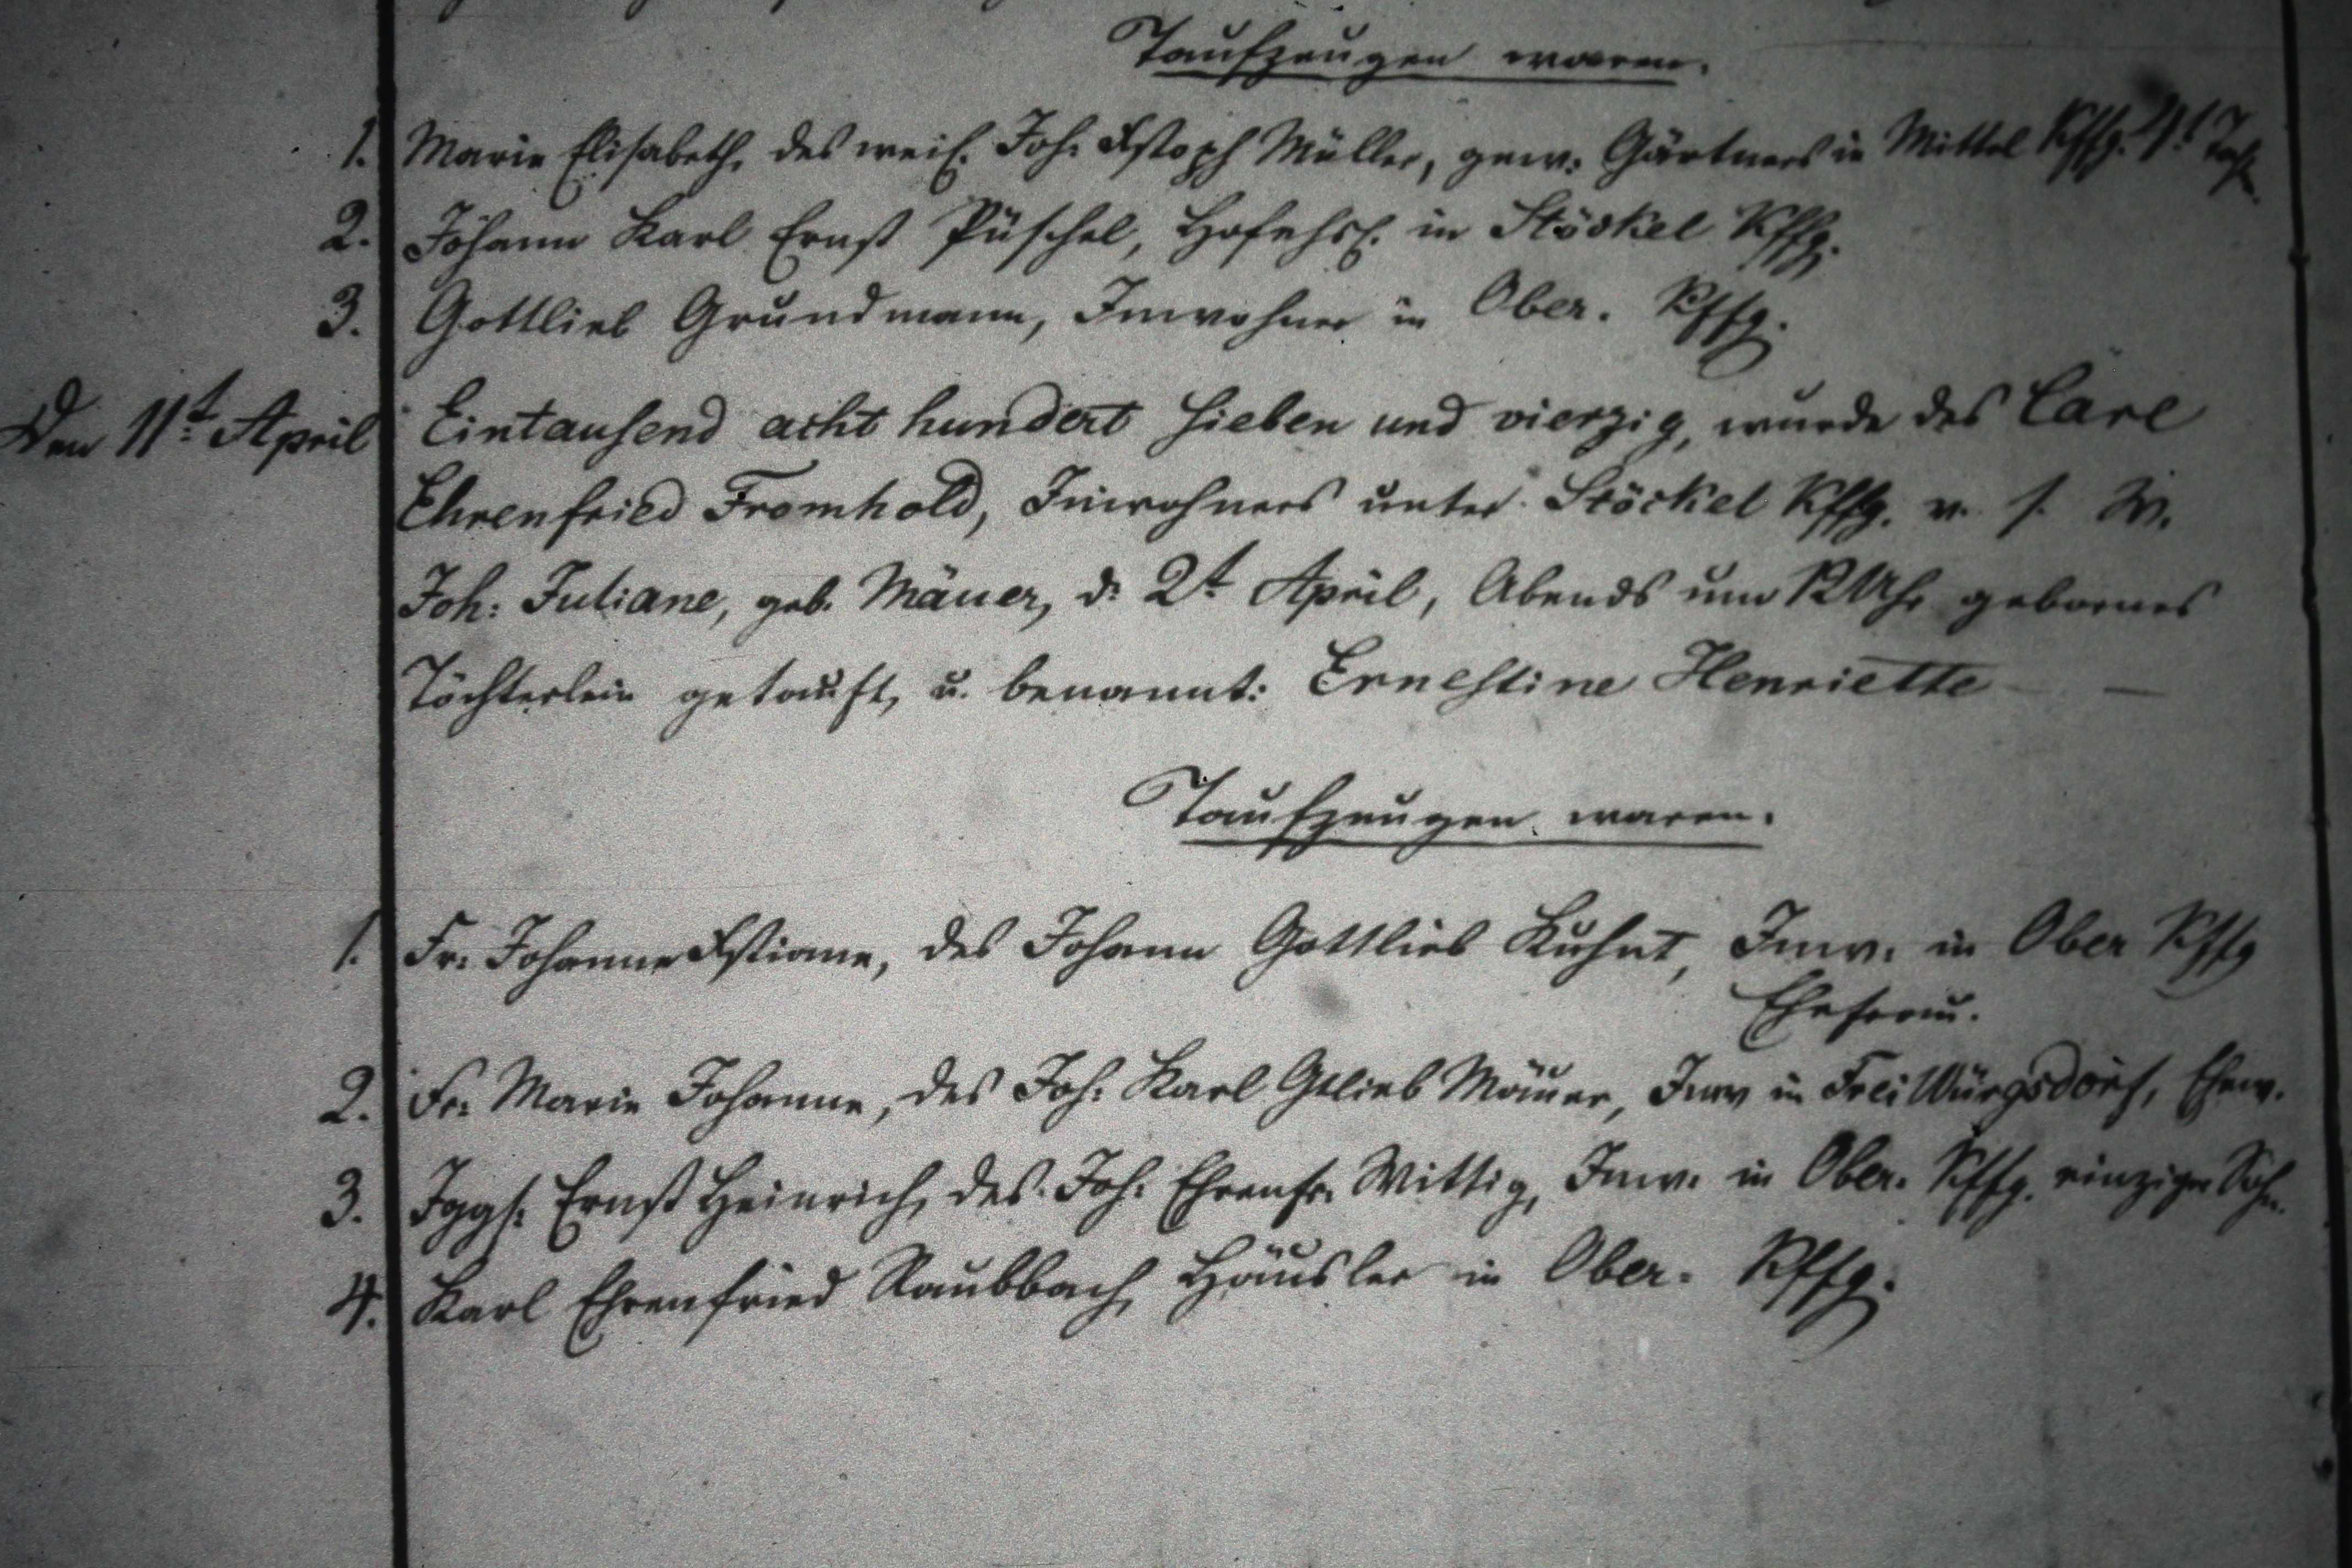 Taufzeugen waren.
1. Marie Elisabeth, des weil. Joh. Xstoph Müller, gew: Gärtners in Mittel Kffg.
2. Johann Karl Ernst Püschel, in Stöckel Kffg.
3. Gottlieb Grundmann, Inwohner in Ober. Kffg.
Den 11t. April Eintausend acht hundert sieben und vierzig, wurde des Carl
Ehrenfried Fromhold, Inwohners unter Stöckel Kffg. u. s. W.
Joh: Juliane, geb. Mäuer, d. 2t April, Abends um 12 Uhr gebornes
Töchterlein getauft, u. benannt: Ernestine Henriette —
Taufzeugen waren.
1. Fr: Johanne Xstiane, des Johann Gottlieb Kuhnt, Inw. in Ober Kffg
Ehefrau.
2. Fr. Marie Johanne, des Joh: Karl Gtlieb Mäuer, Inw in Frei Würgsdorf, Ehew.
3. Jggs: Ernst Heinrich, des Joh: Ehrenfr. Wittig, Inw. in Ober. Kffg. einziger Sohn.
4. Karl Ehrenfried Raubbach, Häusler in Ober. Kffg.